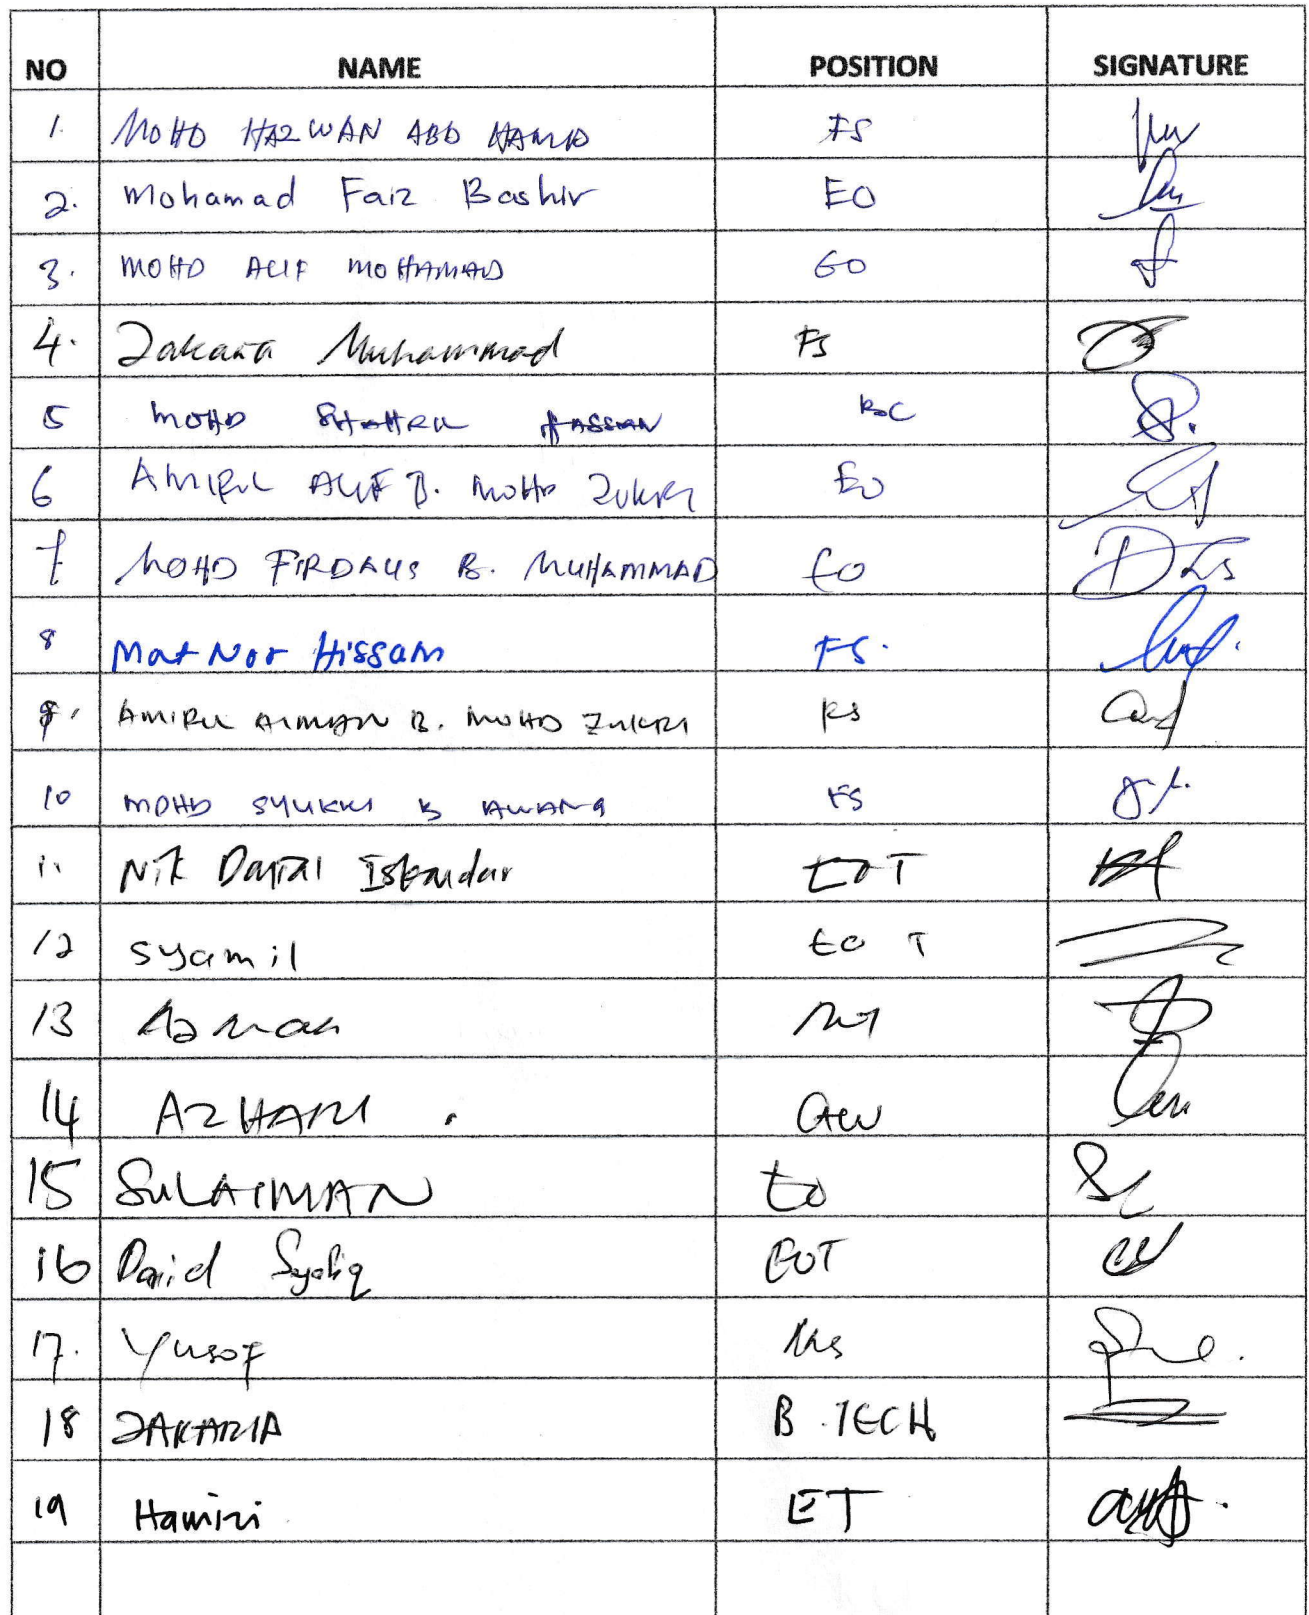 NO NAME POSITION SIGNATURE
1. MOHD HAZWAN ABD HAMID FS
2. Mohamad Faiz Bashir EO
3. MOHD ALIF MOHAMAD EO
4. Zakaria Muhammad FS
5 MOHD SHAHRUL HASSAN
6 AMIRUL ALIF B. MOHD ZUKRI EO
7 MOHD FIRDAUS B. MUHAMMAD EO
8 Mat Nor Hissam FS.
9. AMIRUL AIMAN B. MOHD ZUKRI FS
10 MOHD SYUKRI B AWANG FS
11 Nik Danial Iskandar EOT
12 Syamil EO T
13 Azman
14 AZHARI.
15 SULAIMAN EO
16 Daniel Syafiq EOT
17. Yusof
18 ZAKARIA B.TECH
19 Hamizi ET